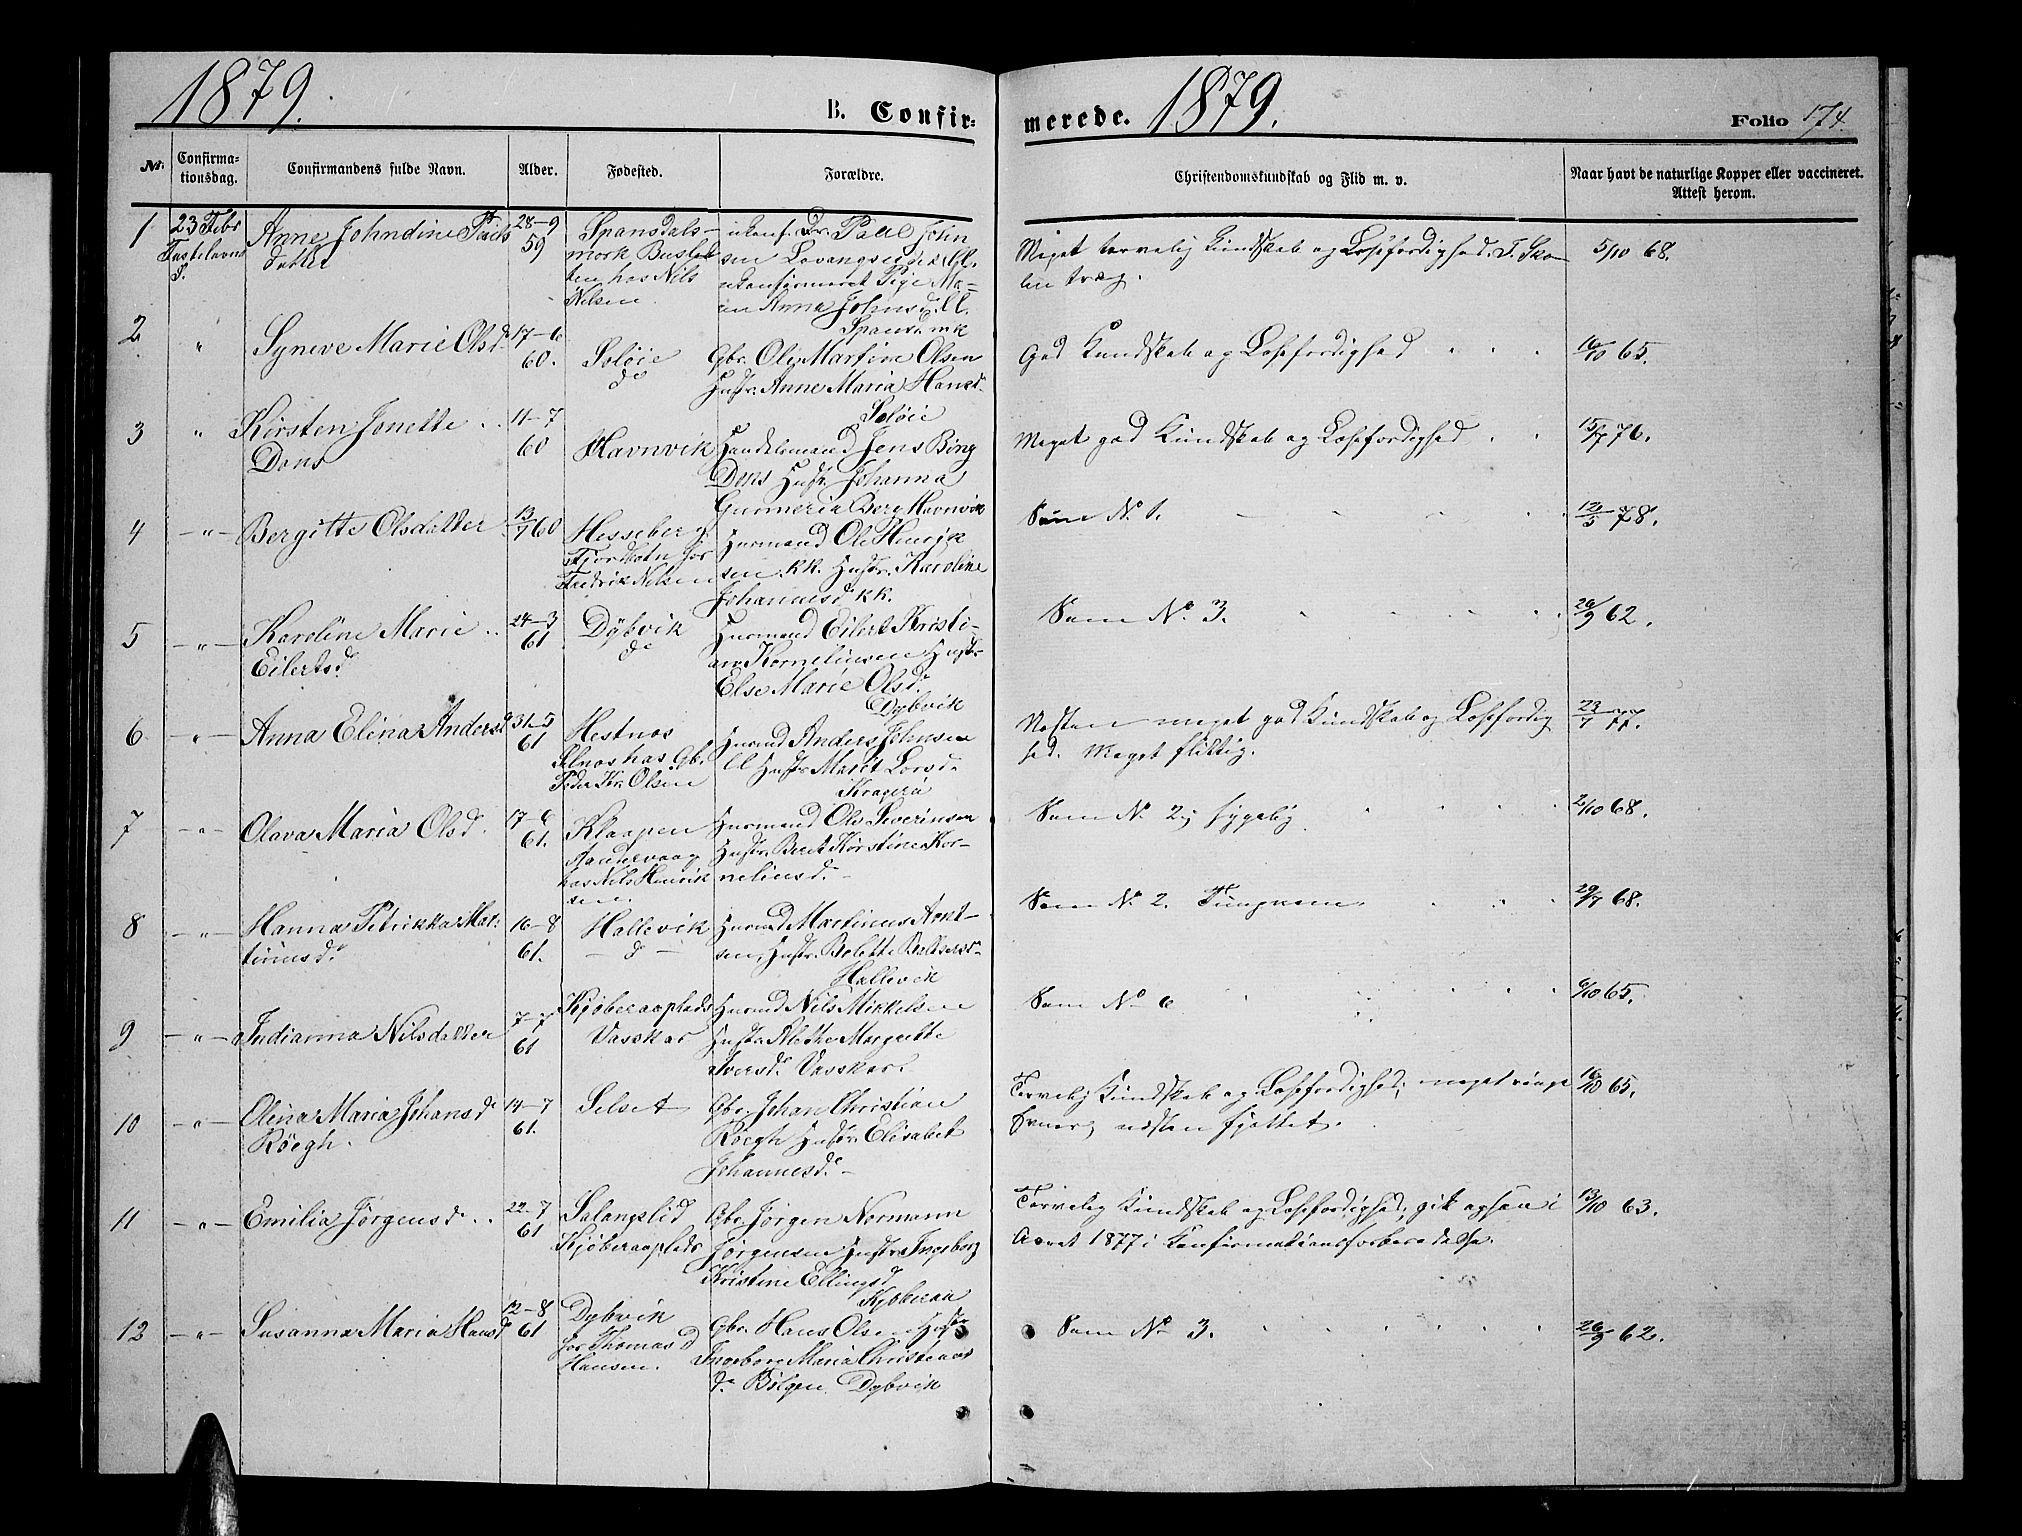 1879.
B. Confir-
merede. 1879.
Folio 174.
Nr.
Confirma-
tionsdag.
Confirmandens fulde Navn.
Alder.
Fødested.
Forældre.
Christendomskundskab og Flid m. v.
Naar havt de naturlige Kopper eller vaccineret.
Attest herom.
1
23 Febr
Fastelavns
d.
Anne Johndine Pauls
datter
28-9
59
Spansdals-
mark Bustet
hos Nils
Nilsen
ukonf. Dr. Paul John
sen Lavangseidet Ll.
ukonfirmeret Pige Ma-
Anna Johnsd. Ll.
Spansd. mk
Meget tarvelig Kundskab og Læsefærdighed. I Sko-
len træg.
5/10 68.
2
"
Syneve Marie Olsd.
17-6
60.
Soløie
do
Gbr. Ole Martin Olsen
Hustr. Anne Maria Hansd.
Soløie
God Kundskab og Læsefærdighed
16/10 65.
3
"
Kirsten Jonette
Dons
11-7
60
Havnvik
Handelsmand Jens Bing
Dons Hustr. Johanna
Gunneria Berg Havnvik
Meget god Kundskab og Læsefærdighed
15/7 76.
4
"
Bergitte Olsdatter
13/7 60
Hesseberg
Fjordbotn for
Fredrik Nilsen
Husmand Ole Henrik
sen. kk. Hustr. Karoline
Johannesd. kk.
Som No. 1.
12/5 78.
5
"
Karoline Marie
Eilertsd.
24-3
61
Dybvik
do
Husmand Eilert Kristi-
an Kornelius en Hustr.
Else Marie Olsd.
Dybvik
Som No. 3.
26/9 62.
6
"
Anna Elina Andersd.
31-5
61
Hestnes
Elnæs hos Gbr.
Peder Kr. Olsen
Husmd Anders Johnsen
Ll Hustr. Marit Larsd.
Kragerø
Næsten meget god Kundskab og Læsefærdig
hed. Meget flittig.
23/7 77.
7
"
Olava Maria Olsd.
17-6
61.
Klaapen
Aandervaag
hos Nils Henrik
sen.
Husmand Ole Severinsen
Hustr. Berit Kirstine Kor-
neliusd.
Som No. 2; sygelig
2/10 68.
8
"
Hanna Petrikka Mar-
tinusd.
16-8
61.
Hallevik
d
Husmd Martinus Arnt-
sen, Hustr. Bolette Baltsersd.
Hallevik
Som No. 2. Tungnem
29/7 68.
9
"
Indianna Nilsdatter
7-7
61
Kjøberaaplads
Vasskar
Husmd Nils Mikkelsen
Hustr. Alethe Margrette
Iversd. Vasskar.
Som No. 6
6/10 65.
10
"
Olina Maria Johansd.
Röegh.
14-7
61.
Selset
Gbr. Johan Christian
Röegh Hustr. Elisabet
Johannesd.
Tarvelig Kundskab og Læsefærdighed; meget ringe
Evner, næsten fjottet.
16/10 65.
11
"
Emilia Jørgensd.
22-7
61
Salangslid
Kjøberaaplads
Gbr. Jørgen Normann
Jørgensen Hustr. Ingeborg
Kristine Ellingsd.
Kjøberaa
Tarvelig Kundskab og Læsefærdighed; gik ogsaa i
Aaret 1877 i Konfirmationsforberedelse.
13/10 63.
12
"
Susanna Maria Hansd.
12-8
61
Dybvik
for Thomas
Hansen.
Gbr. Hans Olsen Hustr.
Ingeborg Maria Christians
d. Bølgen Dybvik
Som No. 3.
26/9 62.